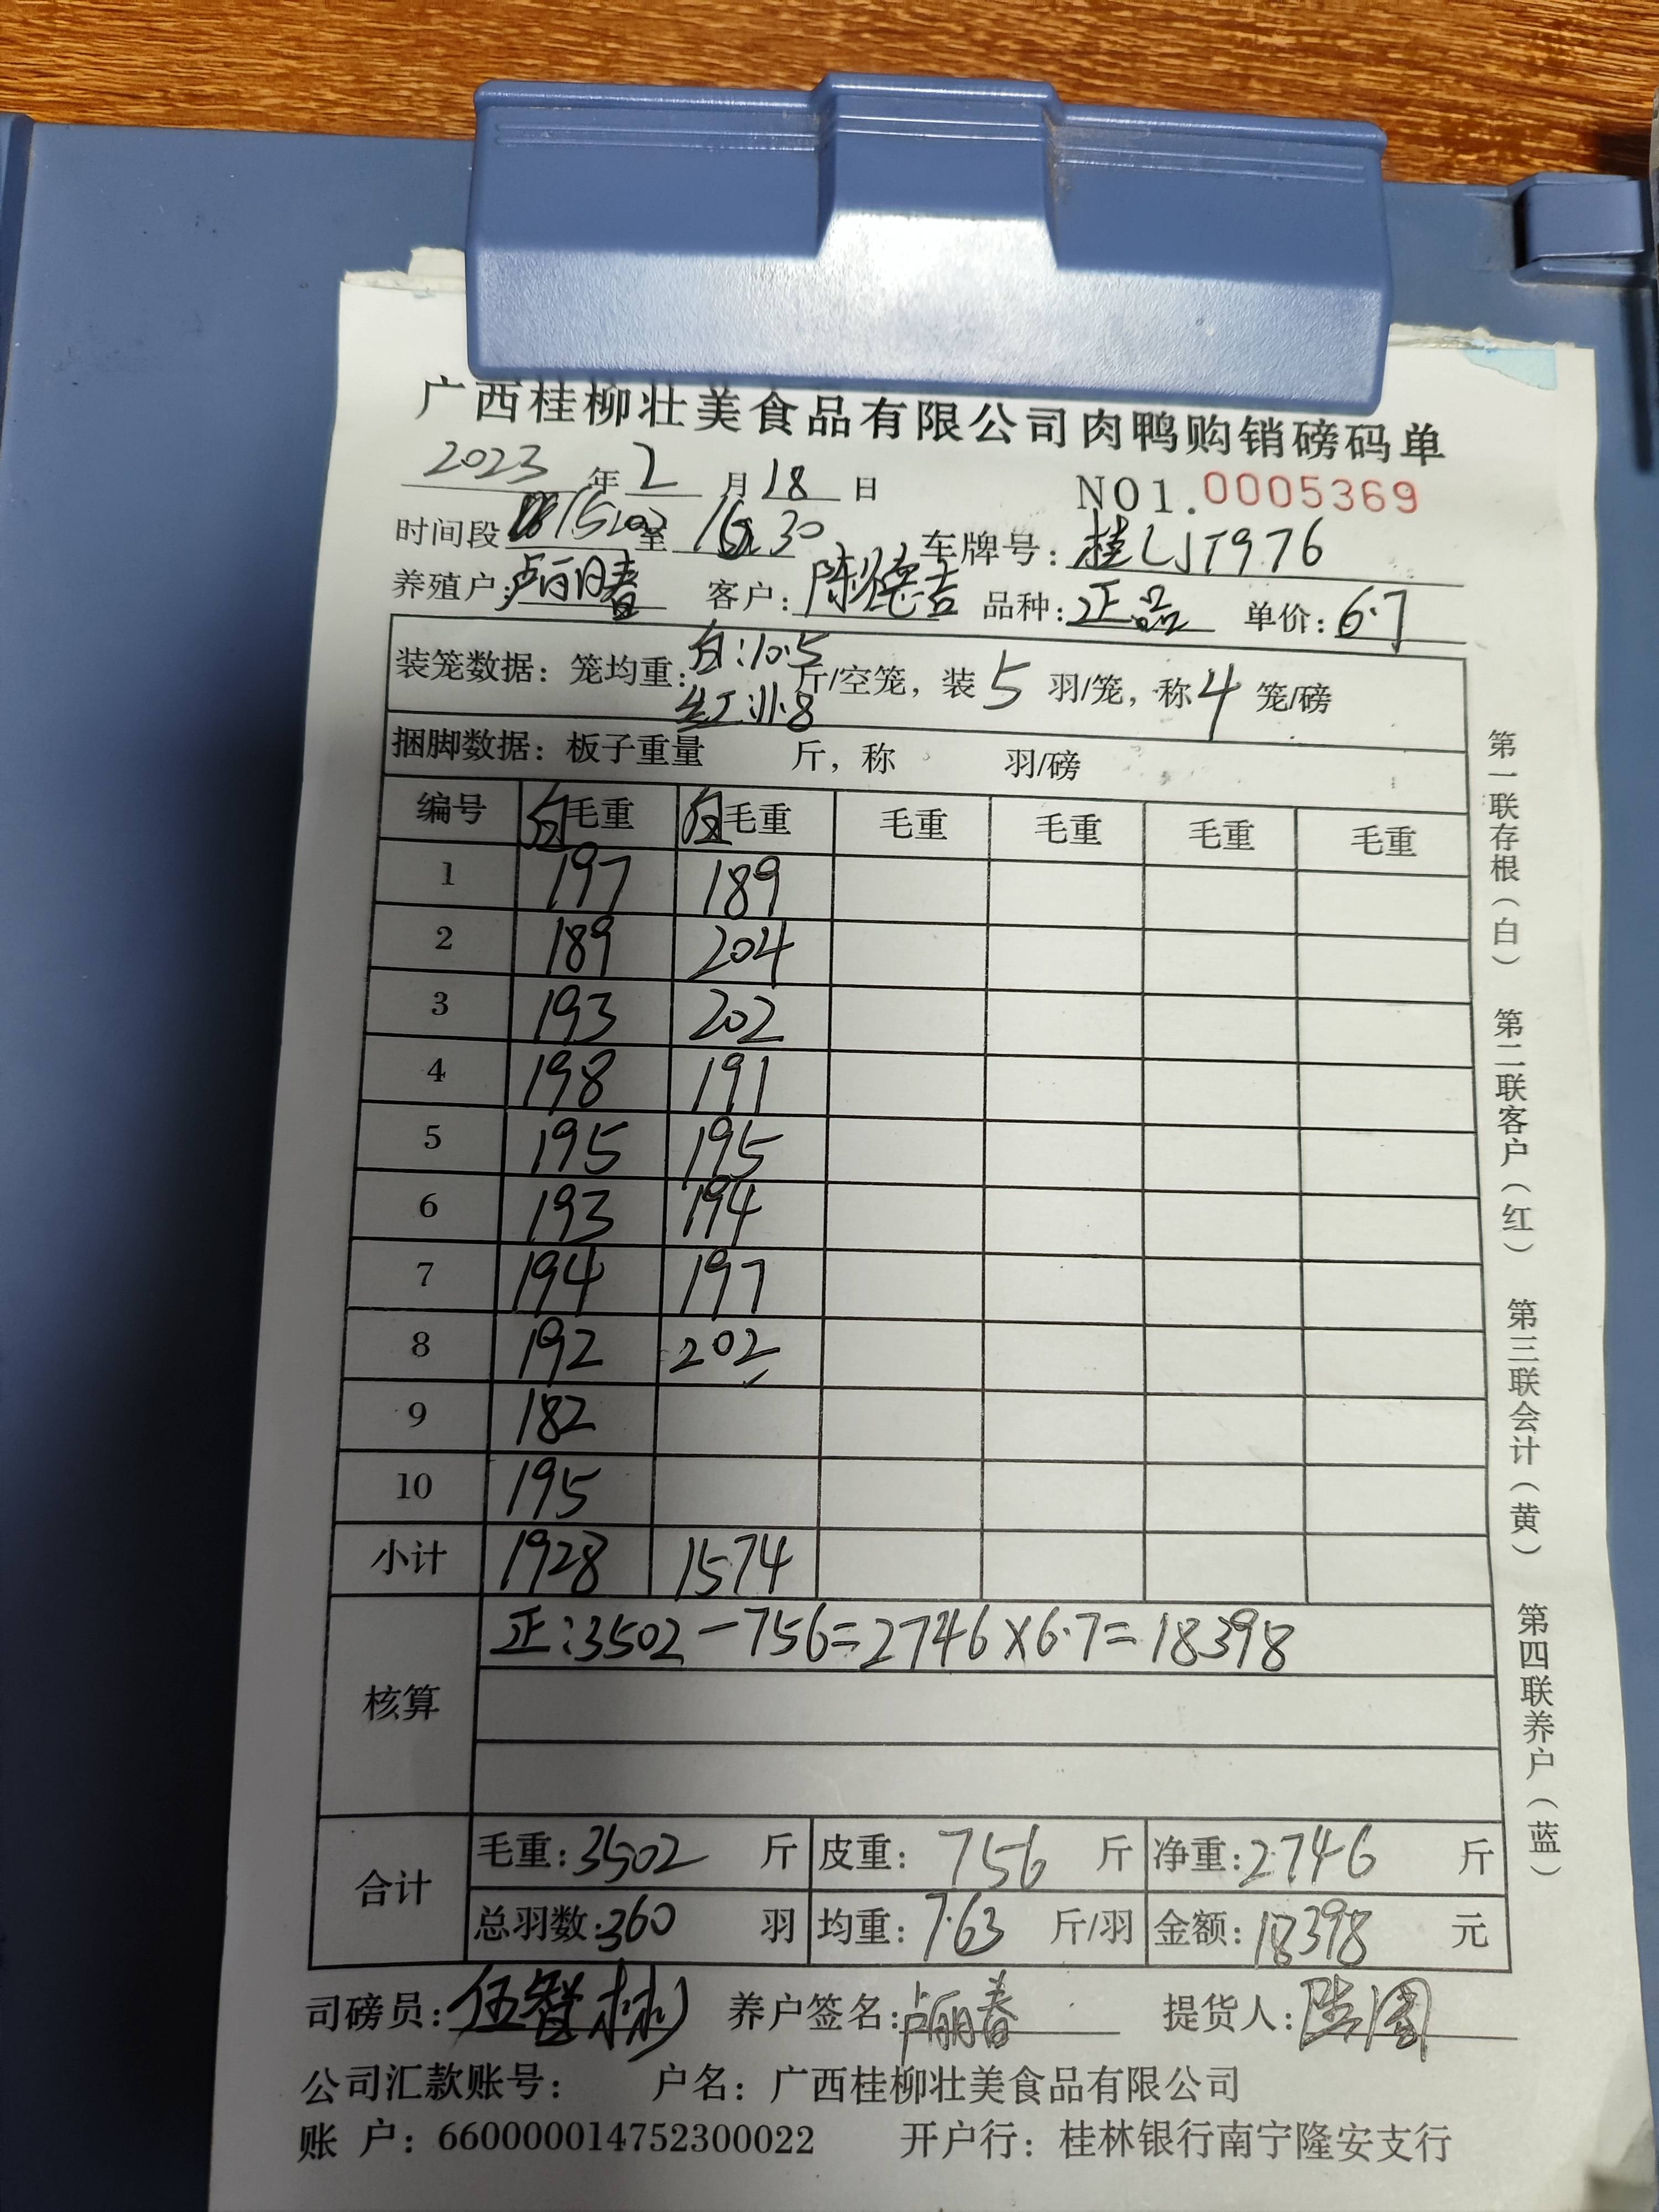 广西桂柳壮美食品有限公司肉鸭购销磅码单
2023年2月18日 NO1.0005369
时间段 至 16:30 车牌号：桂LJT976
养殖户：卢丽春 客户：陈德吉 品种：正品 单价：6.7
装笼数据：笼均重：白：10.5 红：11.8 斤/空笼，装5羽/笼，称4笼/磅
捆脚数据：板子重量 斤，称 羽/磅
编号 白毛重 毛重 毛重 毛重 毛重 毛重
1 197 189
2 189 204
3 193 202
4 198 191
5 195 195
6 193 194
7 194 197
8 192 202
9 182
10 195
小计 1928 1574
核算 正：3502-756=2746×6.7=18398
合计 毛重：3502斤 皮重：756斤 净重：2746斤
总羽数：360羽 均重：7.63斤/羽 金额：18398元
司磅员：伍智彬 养户签名：卢丽春 提货人：
公司汇款账号： 户名：广西桂柳壮美食品有限公司
账 户：660000014752300022 开户行：桂林银行南宁隆安支行
第一联存根（白） 第二联客户（红） 第三联会计（黄） 第四联养户（蓝）